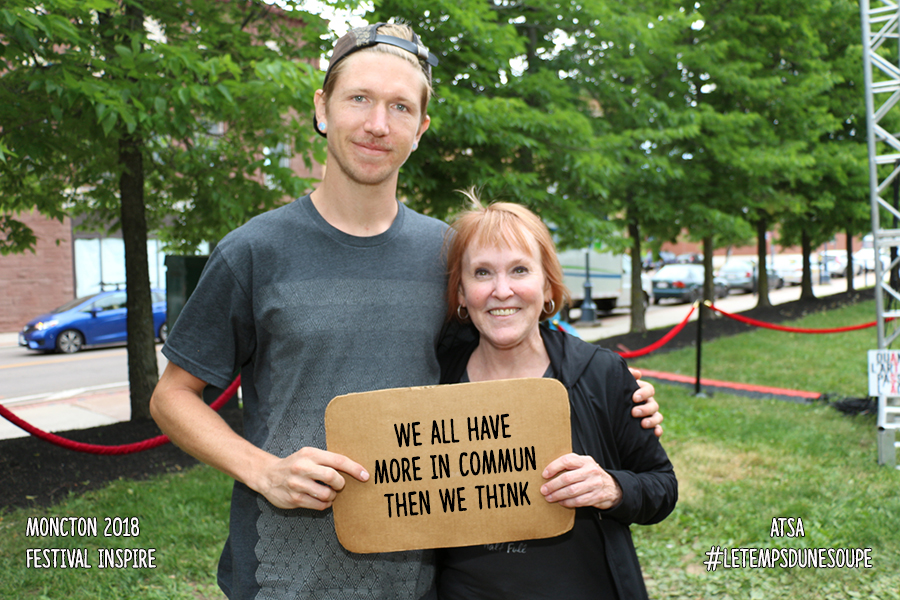 WE ALL HAVE
MORE IN COMMUN
THEN WE THINK
MONCTON 2018
FESTIVAL INSPIRE
ATSA
#LETEMPSDUNESOUPE